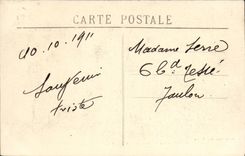 CARTE POSTALE
10.10.1911
Souvenir
triste
Madame Serre
6 bd Tessé
Toulon